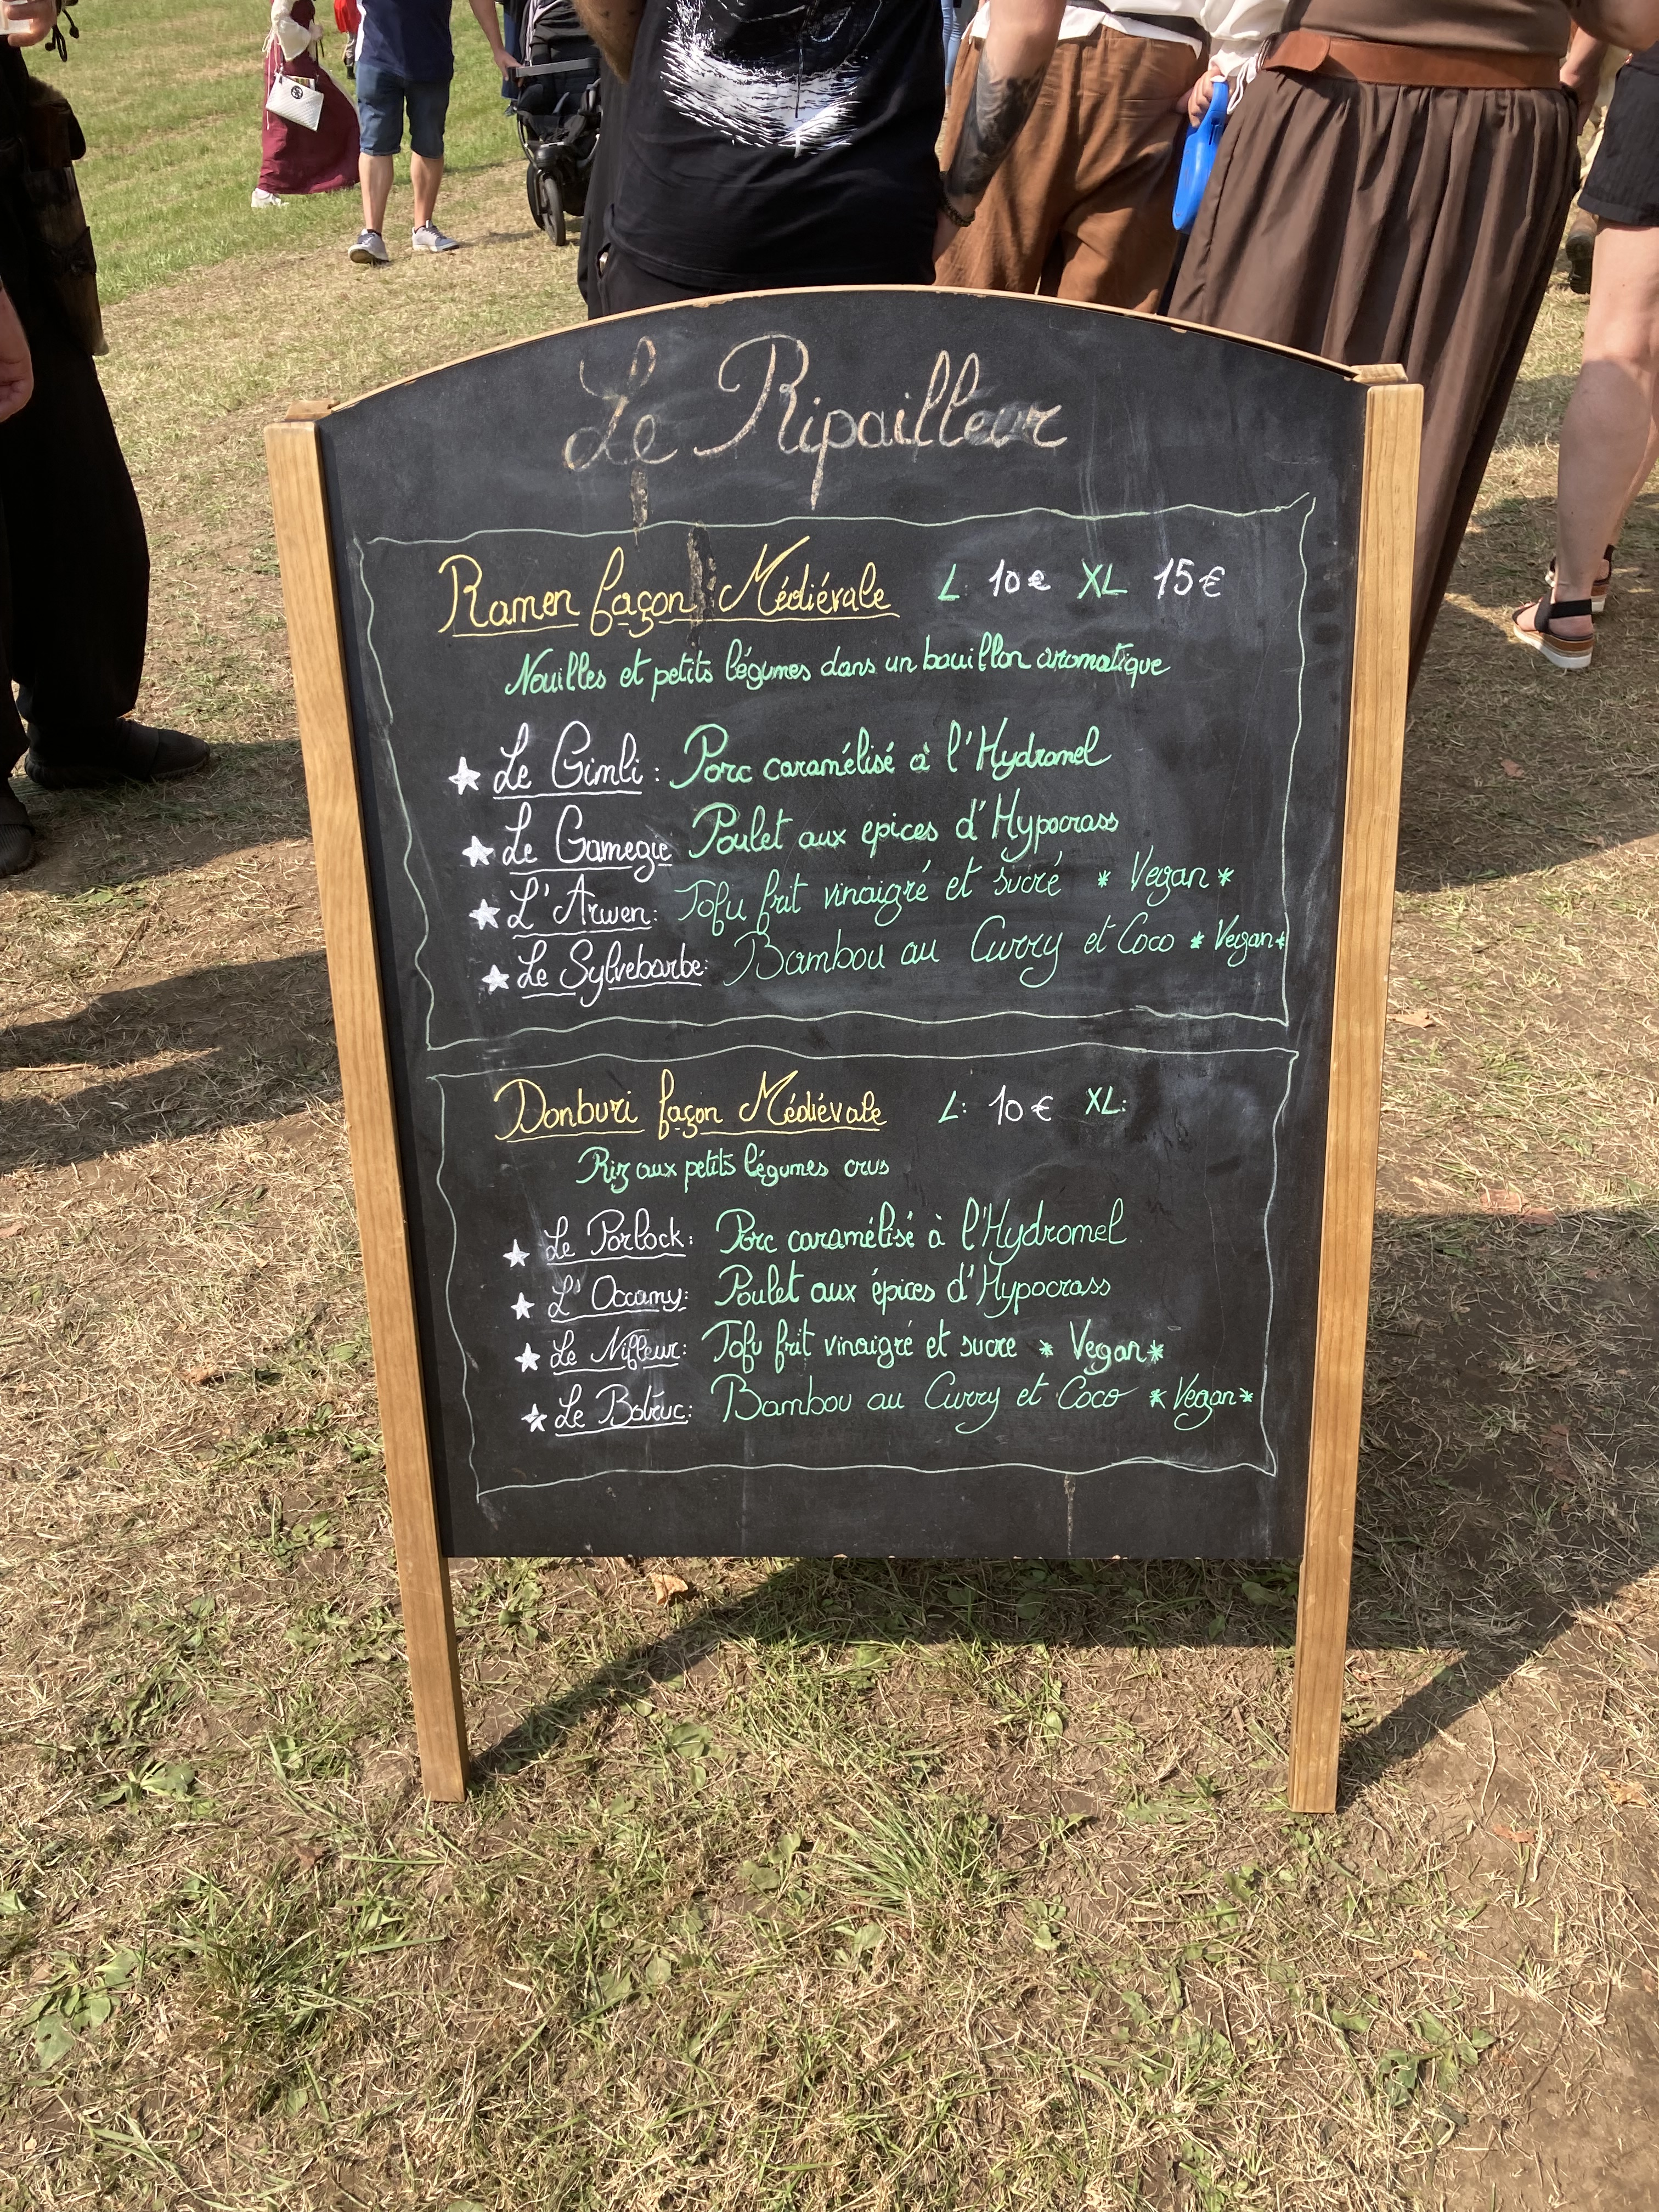 Le Ripailleur
Ramen façon Médiévale L: 10€ XL 15€
Nouilles et petits légumes dans un bouillon aromatique
★ Le Gimli : Porc caramélisé à l'Hydromel
★ Le Gamegie Poulet aux epices d'Hypocrass
★ L'Arwen: Tofu frit vinaigré et sucré * Vegan *
★ Le Sylvebarbe: Bambou au Curry et Coco * Vegan *
Donburi façon Médiévale L: 10€ XL:
Riz aux petits légumes crus
★ Le Porlock: Porc caramélisé à l'Hydromel
★ L'Occamy: Poulet aux épices d'Hypocrass
★ Le Nifleur: Tofu frit vinaigré et sucre * Vegan *
★ Le Botruc: Bambou au Curry et Coco * Vegan *